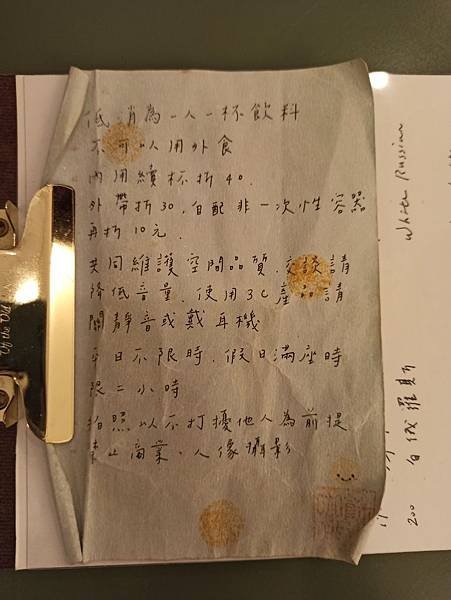 低消為一人一杯飲料
不可以用外食
內用續杯折40.
外帶折30,自配非一次性容器
再折10元.
共同維護空間品質.交談請
降低音量,使用3C產品請
開靜音或戴耳機
平日不限時,假日滿座時
限二小時
拍照以不打擾他人為前提
禁止商業、人像攝影
White Russian
200 白俄羅斯
of the Old